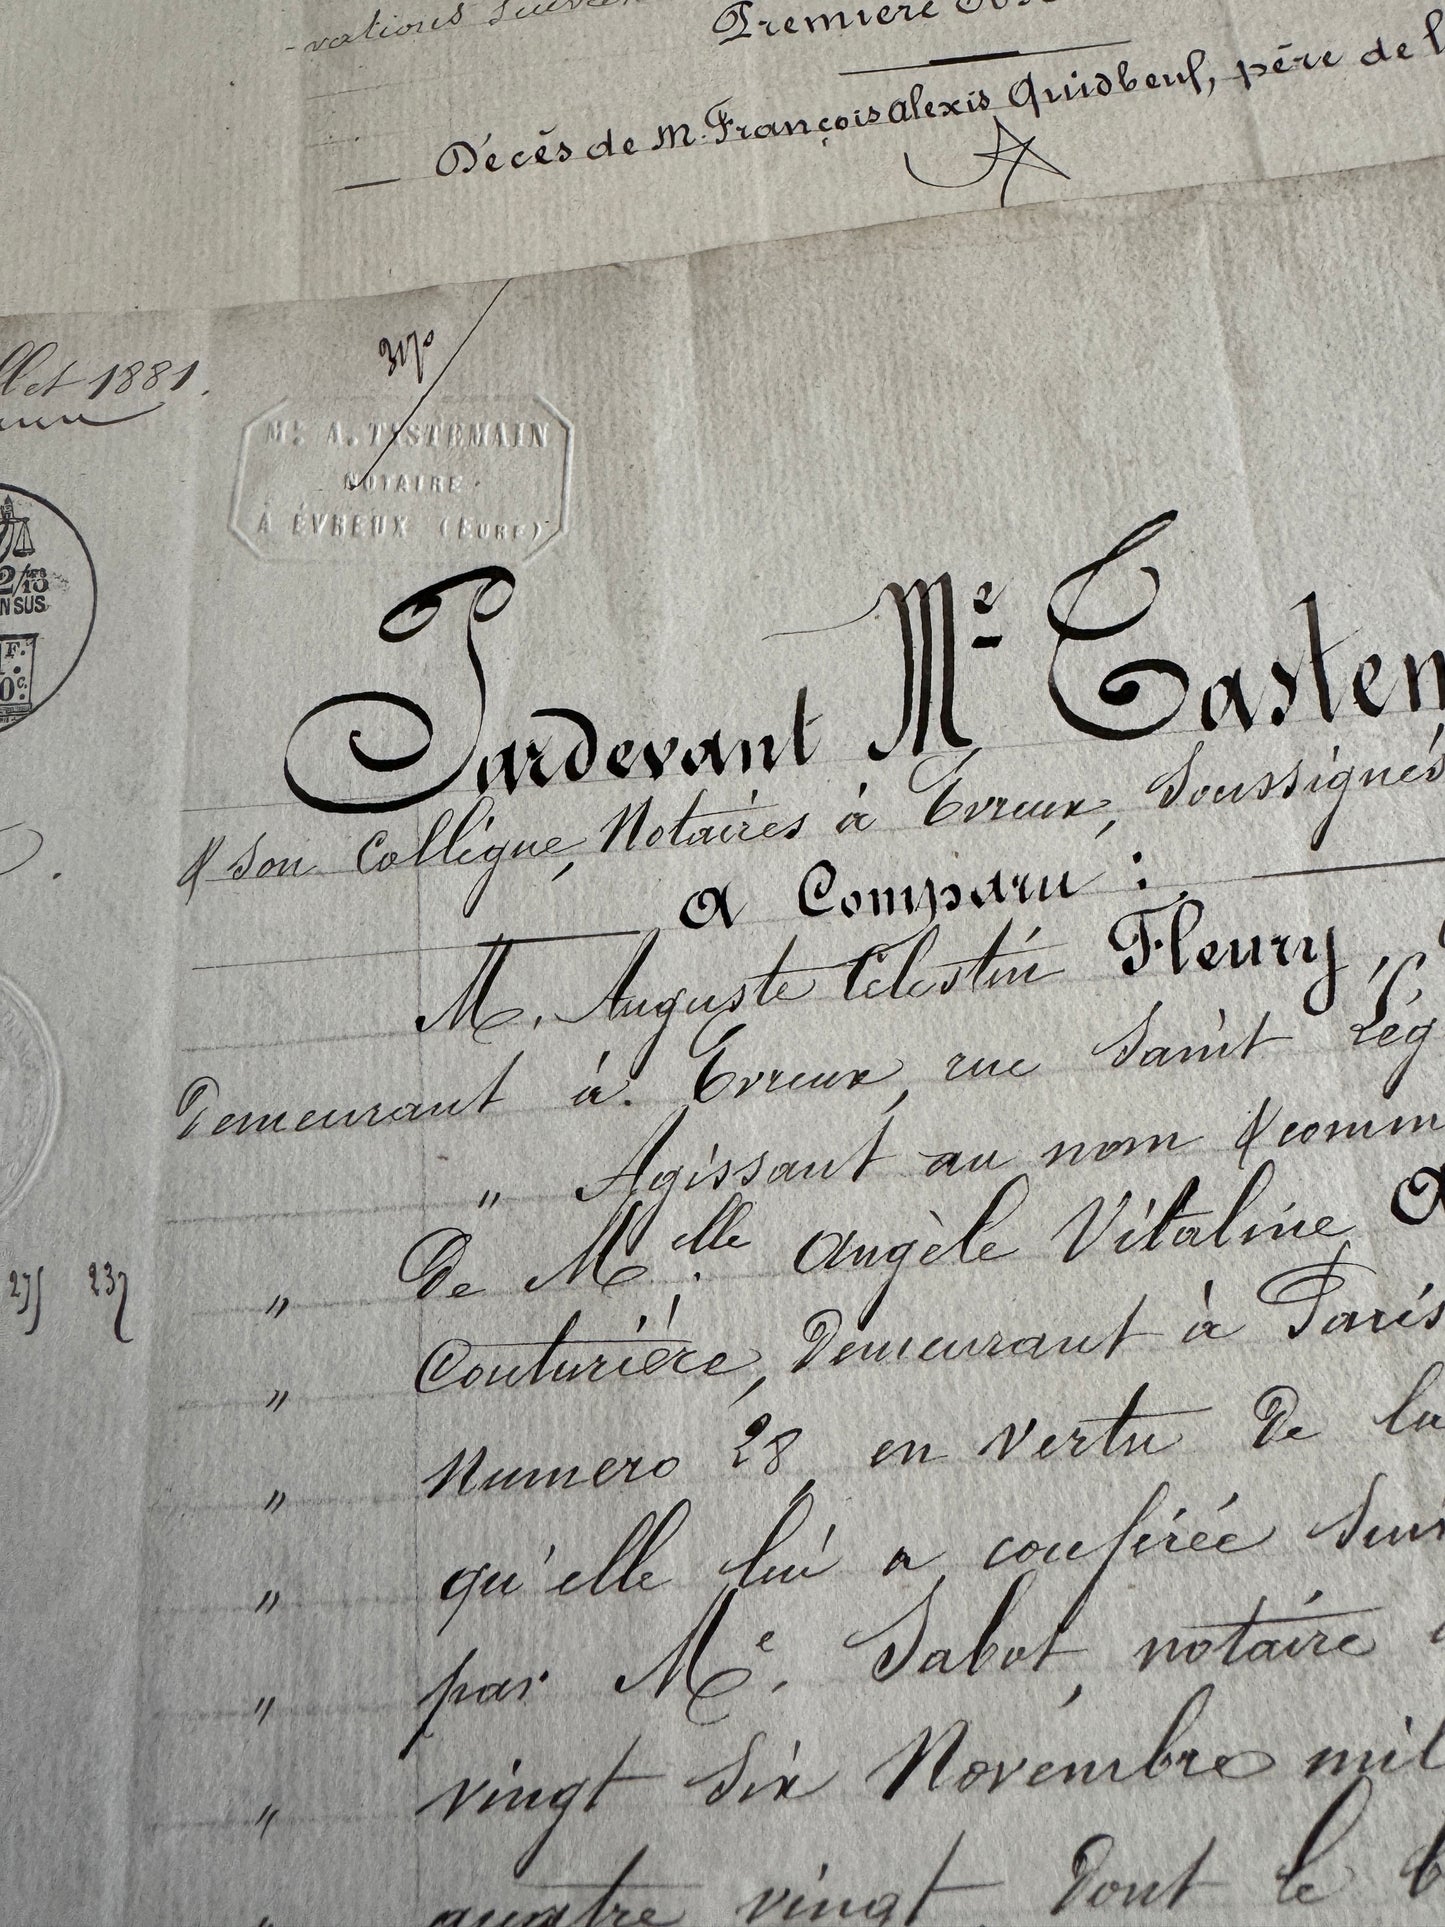 -vations suivan
Première
Décès de M. François Alexis Quidbeuf, père de l
llet 1881.
Me A. TASTEMAIN
NOTAIRE
À ÉVREUX (EURE)
2/10
EN SUS
F.
0c.
Pardevant Me Tastem
& son Collègue, Notaires à Evreux, soussignés
a Comparu :
M. Auguste Célestin Fleury,
Demeurant à Evreux, rue Saint Lég
" Agissant au nom & comm
" De Melle Angèle Vitaline
" Couturière, Demeurant à Paris
" Numéro 28, en vertu De la
" qu'elle lui a conférée suiv
" par Me. Sabot, notaire
" vingt six Novembre mil
" quatre vingt, Dont le b
275 237